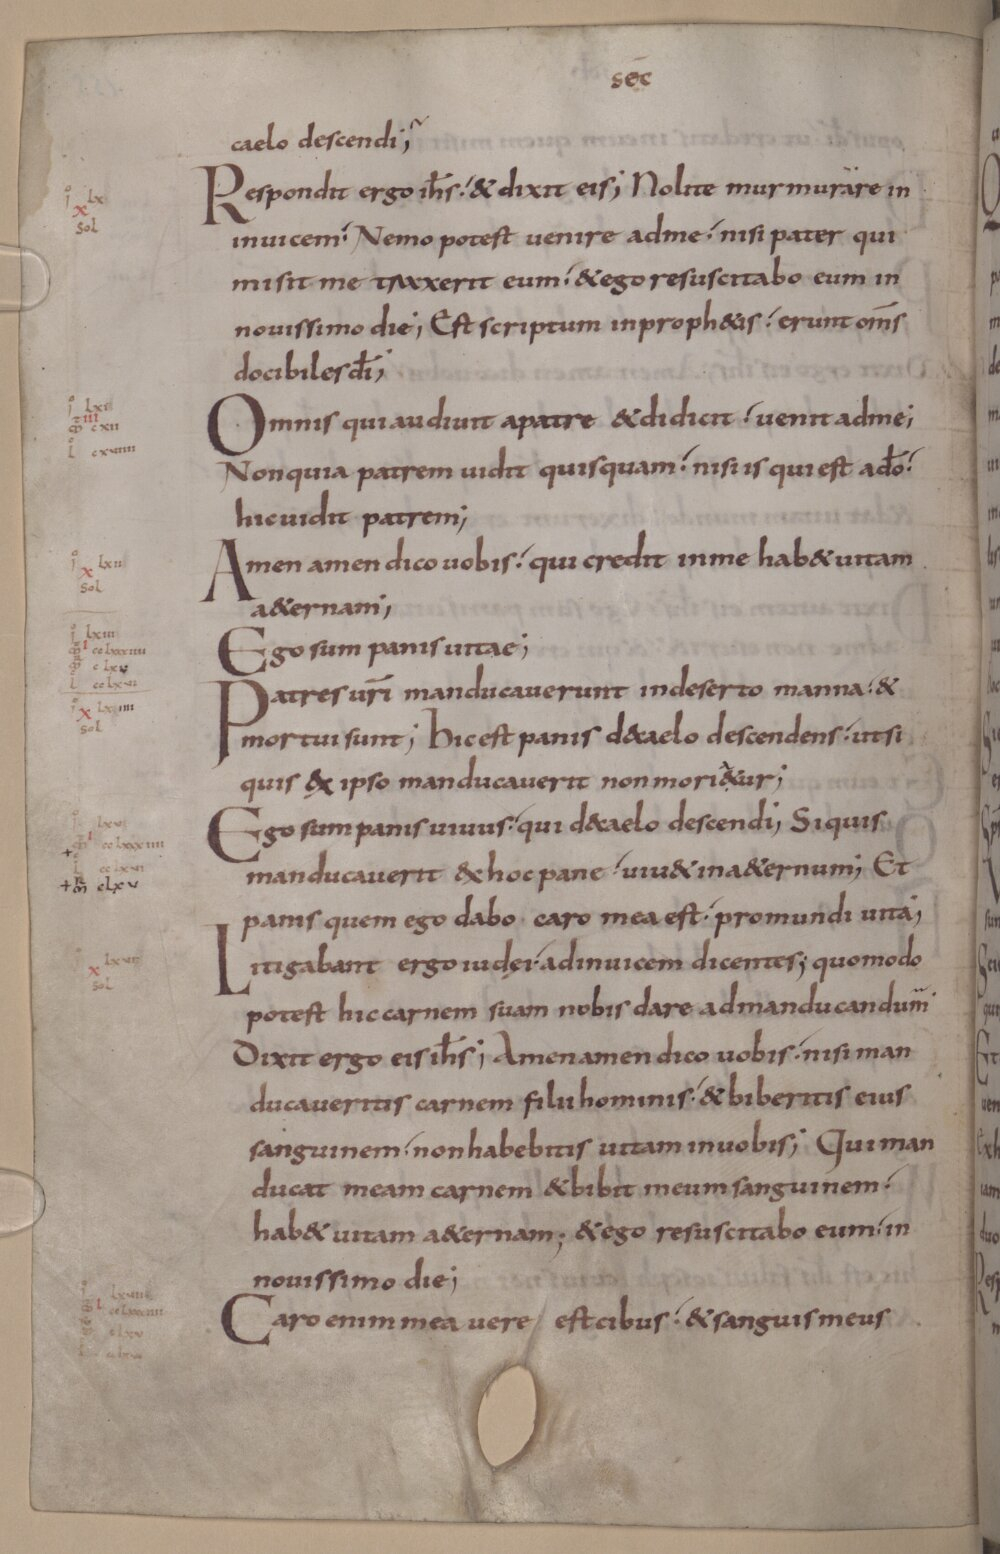 sēc
caelo descendi;
Respondit ergo ih̄s. & dixit eis; Nolite murmurare in
inuicem. Nemo potest uenire adme. nisi pater qui
misit me traxerit eum. & ego resuscitabo eum in
nouissimo die; Est scriptum in proph&is. erunt om̄s
docibiles dī;
Omnis qui audiuit a patre & didicit. uenit adme;
Non quia patrem uidit quisquam. nisi is qui est adō.
hic uidit patrem;
Amen amen dico uobis. qui credit inme hab& uitam
a&ernam;
Ego sum panis uitae;
Patres ur̄i manducauerunt in deserto manna. &
mortui sunt; hic est panis d&aelo descendens. ut si
quis &x ipso manducauerit non mori&ur;
Ego sum panis uiuus. qui d&aelo descendi; Siquis
manducauerit &x hoc pane. uiu& in a&ernum; Et
panis quem ego dabo caro mea est. pro mundi uita;
Litigabant ergo iudei. adinuicem dicentes; quomodo
potest hic carnem suam nobis dare admanducandum
Dixit ergo eis ih̄s; Amen amen dico uobis. nisi man
ducaueritis carnem filii hominis. & biberitis eius
sanguinem. non habebitis uitam in uobis; Qui man
ducat meam carnem & bibit meum sanguinem.
hab& uitam a&ernam; & ego resuscitabo eum. in
nouissimo die;
Caro enim mea uere est cibus. & sanguis meus